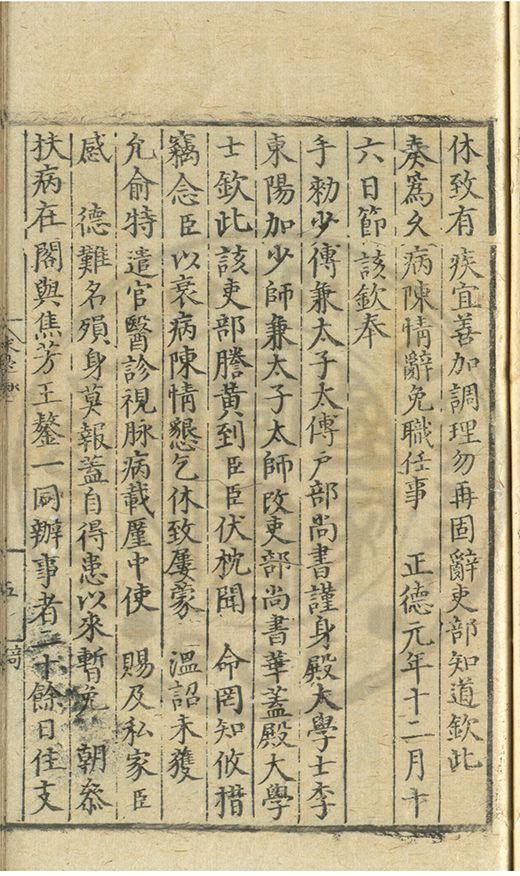 休致有疾宜善加調理勿再固辭吏部知道欽此
奏爲久病陳情辭免職任事 正德元年十二月十
六日節該欽奉
手勑少傅兼太子太傅戶部尚書謹身殿大學士李
東陽加少師兼太子太師改吏部尚書華蓋殿大學
士欽此該吏部謄黃到臣臣伏枕聞 命罔知攸措
竊念臣以衰病陳情懇乞休致屢蒙 溫詔未獲
允俞特遣官醫診視脉病載厪中使 賜及私家臣
感 德難名殞身莫報蓋自得患以來暫免 朝叅
扶病在閣與焦芳王鏊一同辦事者二十餘日佳支
五